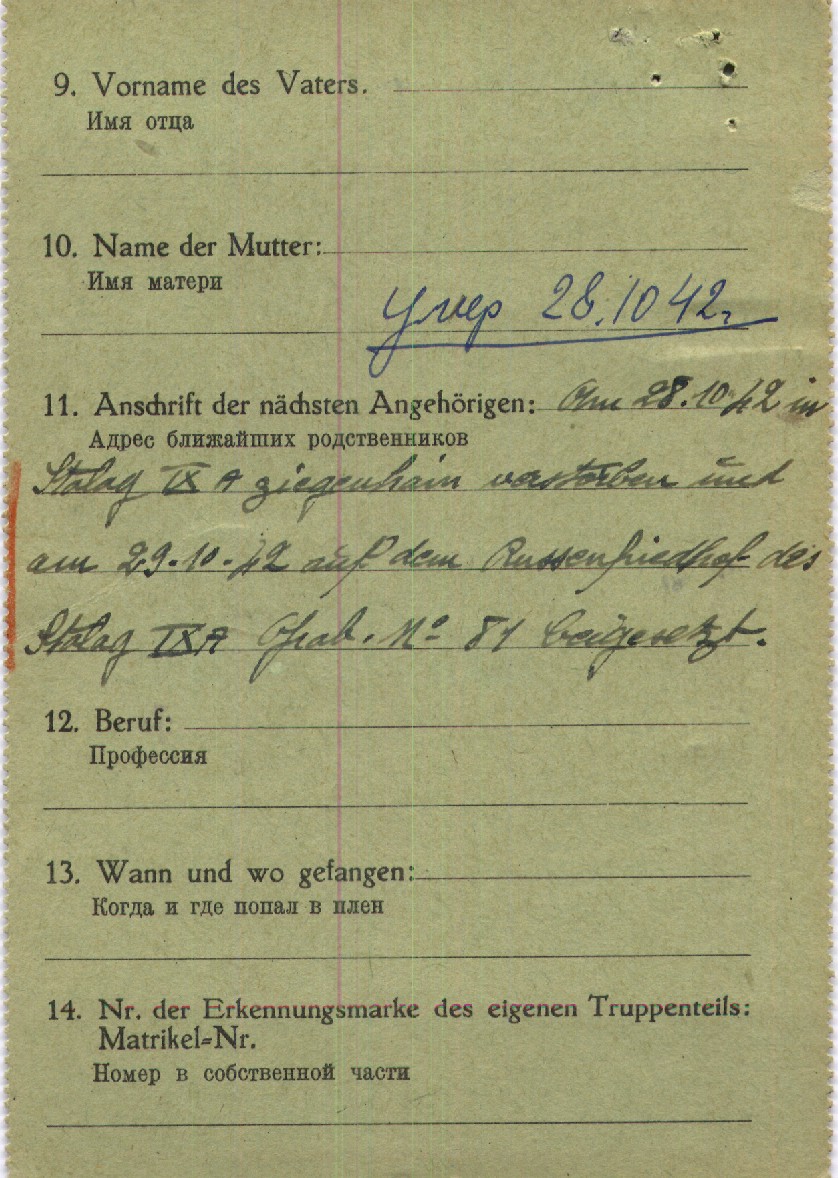 9. Vorname des Vaters.
Имя отца
10. Name der Mutter:
Имя матери
Умер 28.10 42.
11. Anschrift der nächsten Angehörigen: Am 28.10.42 in
Адрес ближайших родственников
Stalag IX A Ziegenhain verstorben und
am 29.10.42 auf dem Russenfriedhof des
Stalag IX A Grab. No 81 beigesetzt.
12. Beruf:
Профессия
13. Wann und wo gefangen:
Когда и где попал в плен
14. Nr. der Erkennungsmarke des eigenen Truppenteils:
Matrikel=Nr.
Номер в собственной части